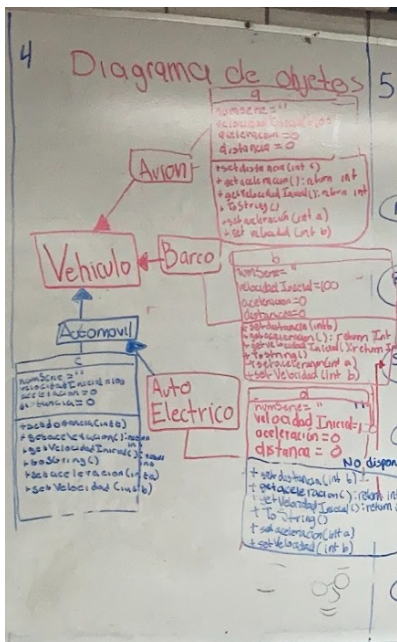 4
Diagrama de objetos
5
a
numSerie=""
velocidad Inicial
aceleracion=0
distancia=0
+setdistancia(int
+getaceleracion():return int
+getVelocidadInicial():return int
+ToString()
+setaceleración(int a)
+set velocidad (int b)
Avion
Vehiculo
Barco
b
numSerie="
velocidad Inicial=100
aceleracion=0
distancia=0
+setdistancia(int b)
+getaceleracion(): return Int
+getVelocidad Inicial():return Int
+ToString()
+setaceleracion(int a)
+set Velocidad (int b)
Automovil
c
numSerie=""
velocidad Inicial
aceleracion=0
distancia=0
+setdistancia(int b)
+getaceleracion():return
int
+getVelocidad Inicial():return
int
+toString()
+setaceleracion(int a)
+setVelocidad (int b)
Auto
Electrico
d
numSerie=" "
velocidad Inicial=
aceleración=0
distancia=0
No dispon
+setdistancia(int b)
+getaceleracion(): return int
+getVelocidad Inicial():return i
+To String()
+setaceleracion(int a)
+setVelocidad(int b)